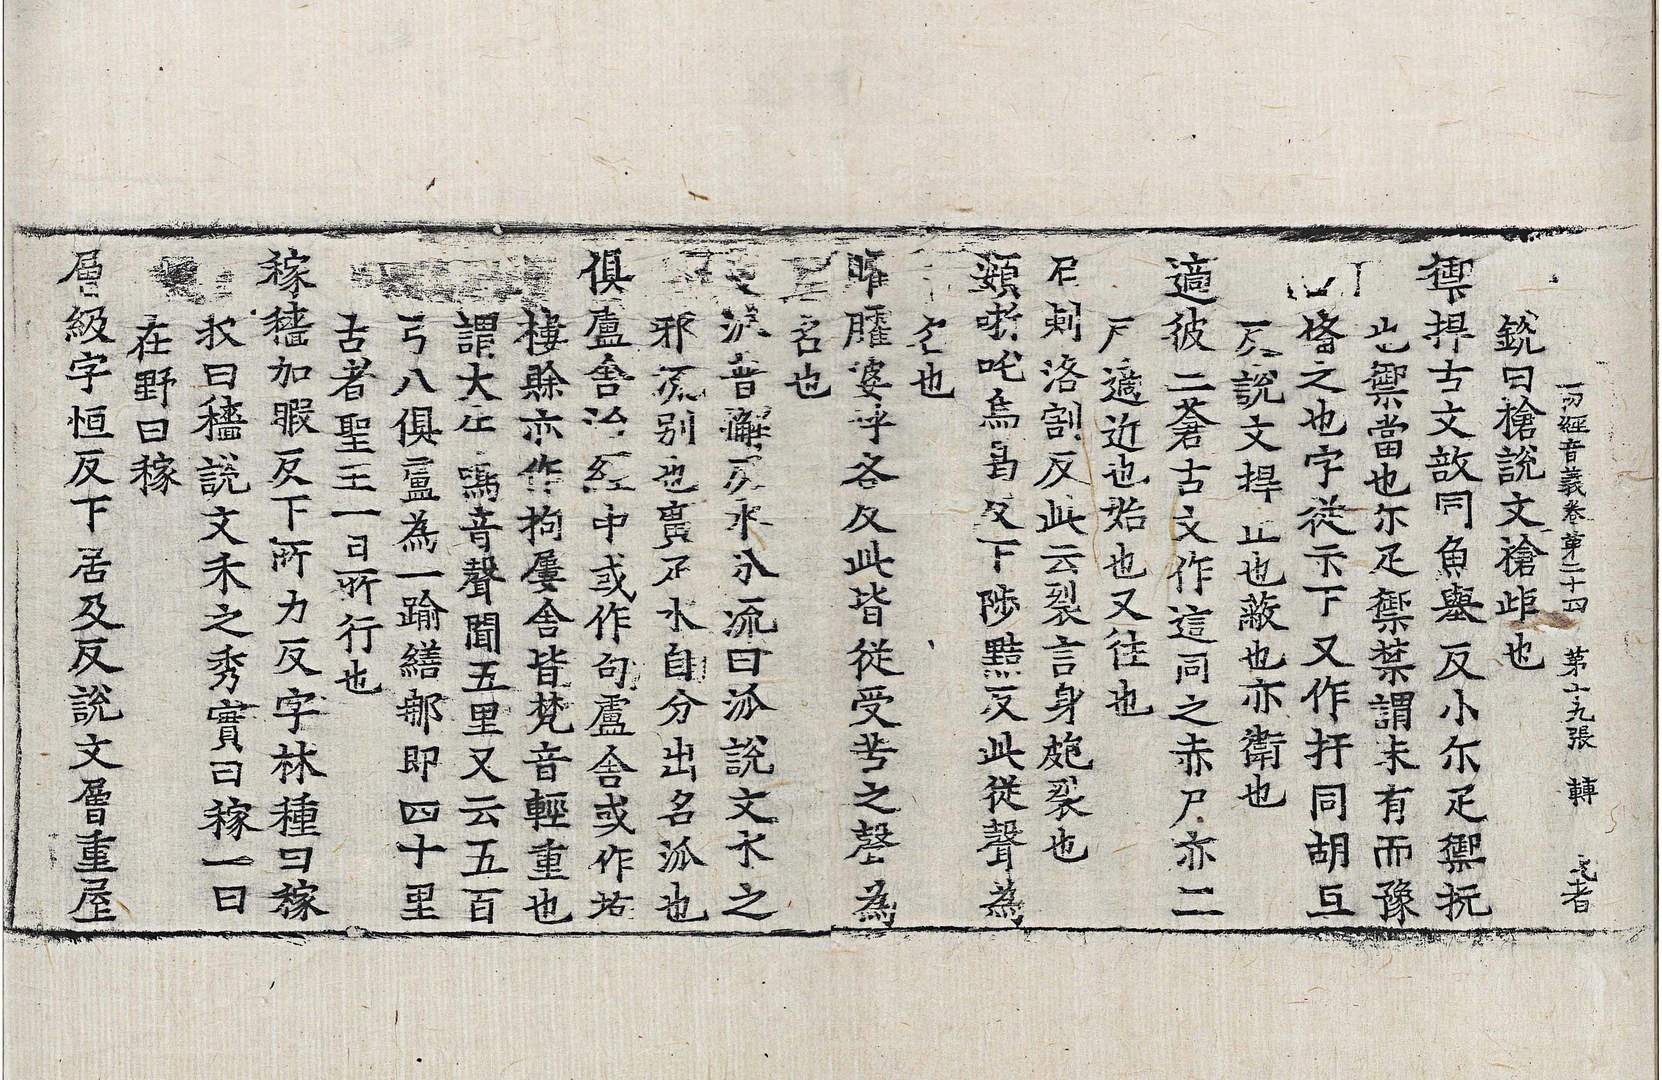 一切經音義卷第二十四 第十九張 轉 者
銳曰槍說文槍歫也
禦捍古文敔同魚舉反小尒疋禦抚
也禦當也尒疋禦禁謂未有而豫
俻之也字從示下又作扞同胡旦
反說文捍止也蔽也亦衛也
適彼二蒼古文作這同之赤尸亦二
尸適近也始也又往也
剌洛割反此云裂言身皰裂也
頞哳吒烏曷反下陟黠反此從聲為
名也
臛婆呼各反此皆從受苦之聲為
名也
派普懈反水分流曰派說文水之
邪流別也賣疋水自分出名派也
俱盧舍治經中或作句盧舍或作拈
樓賒亦作拘屢舍皆梵音輕重也
謂大牛鳴音聲聞五里又云五百
弓八俱盧為一踰繕那即四十里
古者聖王一日所行也
稼穡加暇反下所力反字林種曰稼
收曰穡說文禾之秀實曰稼一曰
在野曰稼
層級字恒反下居及反說文層重屋